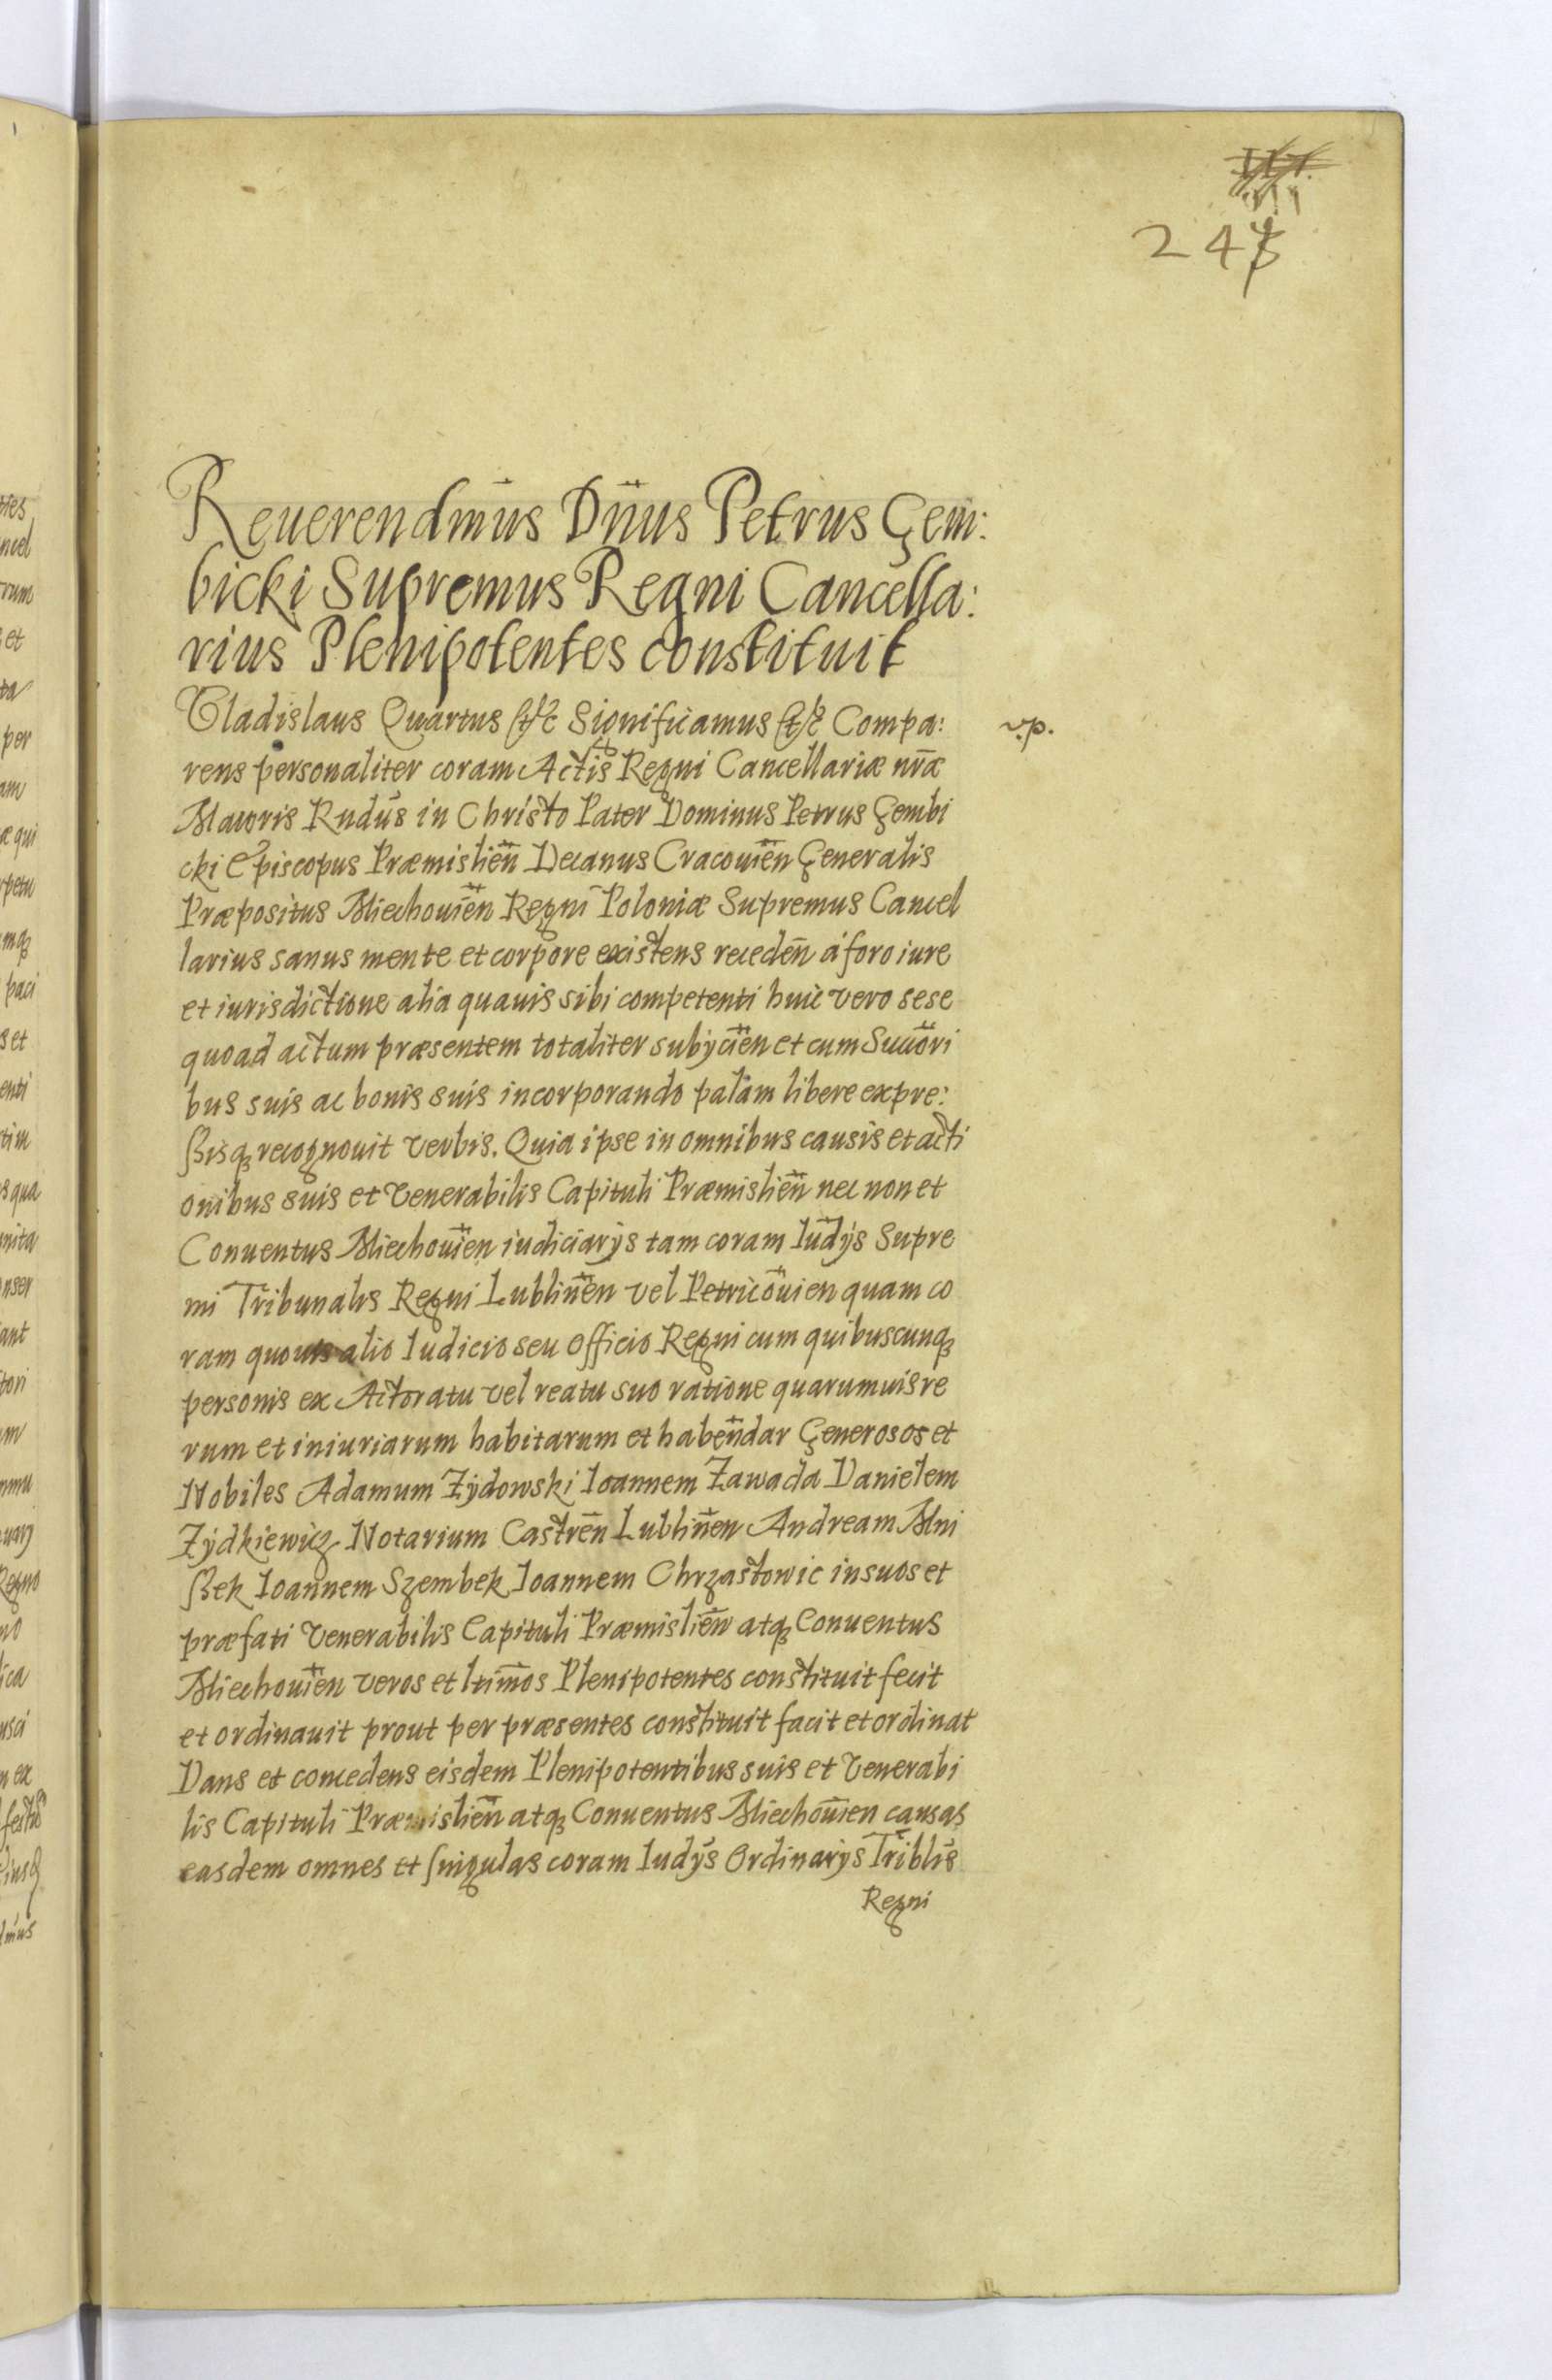 Reuerendmus Dnus Petrus Gem:
bicki Supremus Regni Cancella:
rius Plenipotentes constituit
Vladislaus Quartus etc Significamus etc Compa: v.p.
rens personaliter coram Actis Regni Cancellariæ nrã
Maioris Rndus in Christo Pater Dominus Petrus Gembi
cki Episcopus Præmislien̄ Decanus Cracouien̄ Generalis
Præpositus Miechouien̄ Regni Poloniæ Supremus Cancel
larius sanus mente et corpore existens receden̄ á foro iure
et iurisdictione alia quauis sibi competenti huic vero sese
quoad actum præsentem totaliter subycien̄ et cum Succori
bus suis ac bonis suis incorporando palàm libere expre:
ßisq recognouit verbis. Quia ipse in omnibus causis et acti
onibus suis et Venerabilis Capituli Præmislien̄ nec non et
Conuentus Miechouien̄ iudiciarÿs tam coram Iudÿs Supre
mi Tribunalis Regni Lublinen̄ vel Petricouien̄ quam co
ram quouis alio Iudicio seu officio Regni cum quibuscunq
personis ex Actoratu vel reatu suo ratione quarumuis re
rum et iniuriarum habitarum et habendar Generosos et
Nobiles Adamum Zÿdowski Ioannem Zawada Danielem
Zÿdkiewicz Notarium Castren̄ Lublinen̄ Andream Mni
ßek Ioannem Szembek Ioannem Chrzastowic in suos et
præfati Venerabilis Capituli Præmislien̄ atq Conuentus
Miechouien̄ veros et ltimos Plenipotentes constituit fecit
et ordinauit prout per præsentes constituit facit et ordinat
Dans et concedens eisdem Plenipotentibus suis et Venerabi
lis Capituli Præmislien̄ atq Conuentus Miechouien̄ causas
easdem omnes et singulas coram Iudÿs Ordinarÿs Triblis
Regni